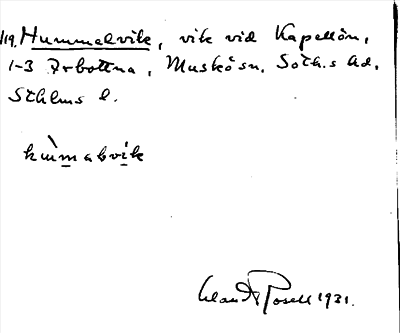 119, Hummelvik, vik vid Kapellön,
1-3 Årbottna, Muskö sn, Soth.s hd,
Sthlms l.
hùmabvik
Claes 1931.